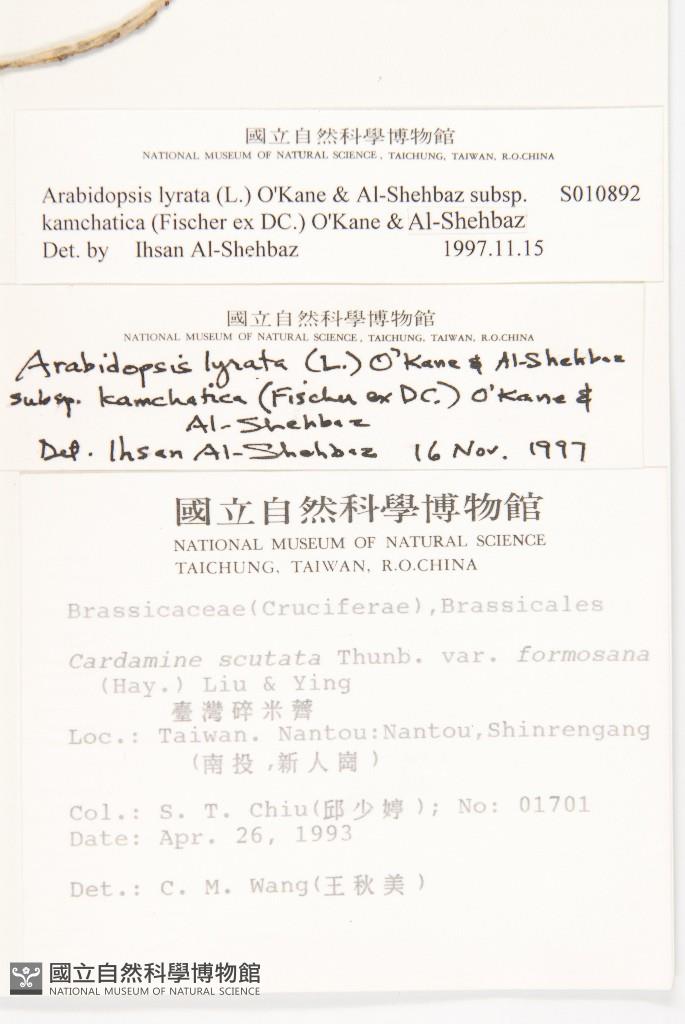 國立自然科學博物館
NATIONAL MUSEUM OF NATURAL SCIENCE, TAICHUNG, TAIWAN, R.O.CHINA
Arabidopsis lyrata (L.) O'Kane & Al-Shehbaz subsp. S010892
kamchatica (Fischer ex DC.) O'Kane & Al-Shehbaz
Det. by Ihsan Al-Shehbaz 1997.11.15
國立自然科學博物館
NATIONAL MUSEUM OF NATURAL SCIENCE, TAICHUNG, TAIWAN, R.O.CHINA
Arabidopsis lyrata (L.) O'Kane & Al-Shehbaz
subsp. kamchatica (Fischer ex DC.) O'Kane &
Al-Shehbaz
Det. Ihsan Al-Shehbaz 16 Nov. 1997
國立自然科學博物館
NATIONAL MUSEUM OF NATURAL SCIENCE
TAICHUNG, TAIWAN, R.O.CHINA
Brassicaceae(Cruciferae),Brassicales
Cardamine scutata Thunb. var. formosana
(Hay.) Liu & Ying
臺灣碎米薺
Loc.: Taiwan. Nantou:Nantou,Shinrengang
(南投,新人崗)
Col.: S. T. Chiu(邱少婷); No: 01701
Date: Apr. 26, 1993
Det.: C. M. Wang(王秋美)
國立自然科學博物館
NATIONAL MUSEUM OF NATURAL SCIENCE